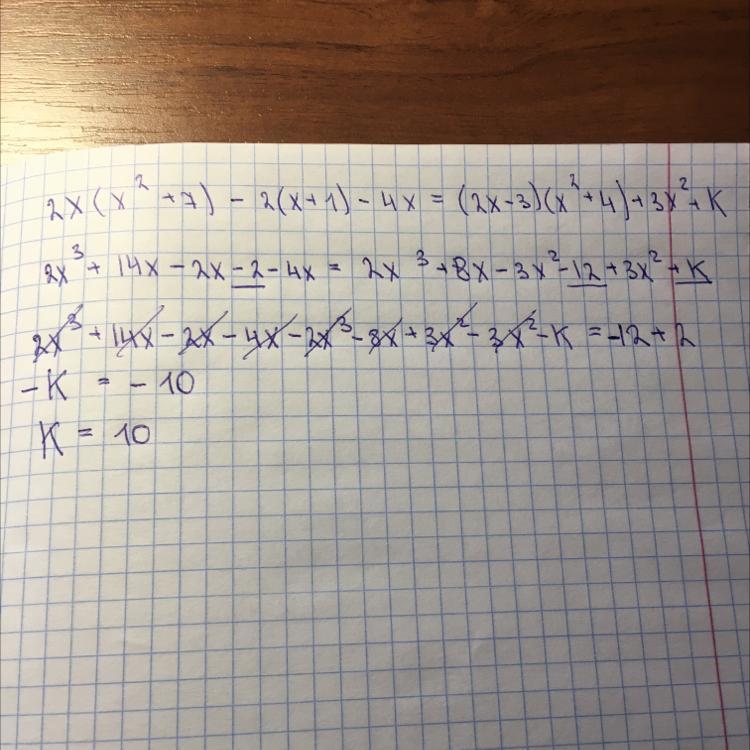 2x(x² + 7) - 2(x+1) - 4x = (2x-3)(x²+4)+3x²+K
2x³ + 14x - 2x - 2 - 4x = 2x³ + 8x - 3x² - 12 + 3x² + K
2x³ + 14x - 2x - 4x - 2x³ - 8x + 3x² - 3x² - K = -12 + 2
-K = - 10
K = 10